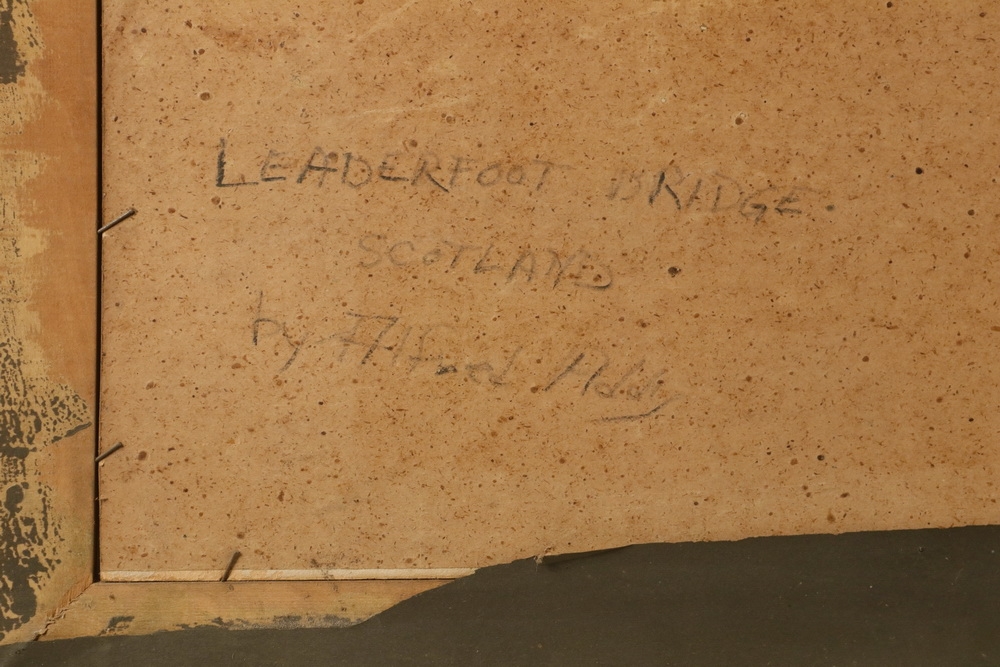 LEADERFOOT BRIDGE.
SCOTLAND
by Alfred Addy